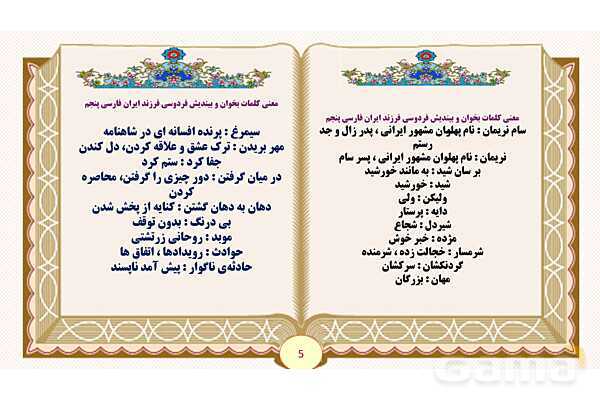 معنی کلمات بخوان و بیندیش فردوسی فرزند ایران فارسی پنجم
سام نریمان : نام پهلوان مشهور ایرانی ، پدر زال و جد
رستم
نریمان : نام پهلوان مشهور ایرانی ، پسر سام
بر سان شید : به مانند خورشید
شید : خورشید
ولیکن : ولی
دایه : پرستار
شیردل : شجاع
مژده : خبر خوش
شرمسار : خجالت زده ، شرمنده
گردنکشان : سرکشان
مهان : بزرگان
معنی کلمات بخوان و بیندیش فردوسی فرزند ایران فارسی پنجم
سیمرغ : پرنده افسانه ای در شاهنامه
مهر بریدن : ترک عشق و علاقه کردن، دل کندن
جفا کرد : ستم کرد
در میان گرفتن : دور چیزی را گرفتن، محاصره
کردن
دهان به دهان گشتن : کنایه از پخش شدن
بی درنگ : بدون توقف
موبد : روحانی زرتشتی
حوادث : رویدادها ، اتفاق ها
حادثه‌ی ناگوار : پیش آمد ناپسند
5
Gama